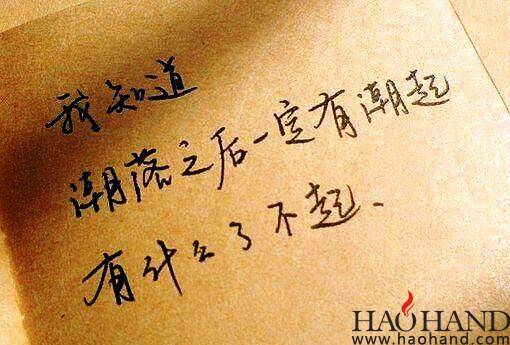 我知道
潮落之后一定有潮起
有什么了不起、
HAOHAND
www.haohand.com